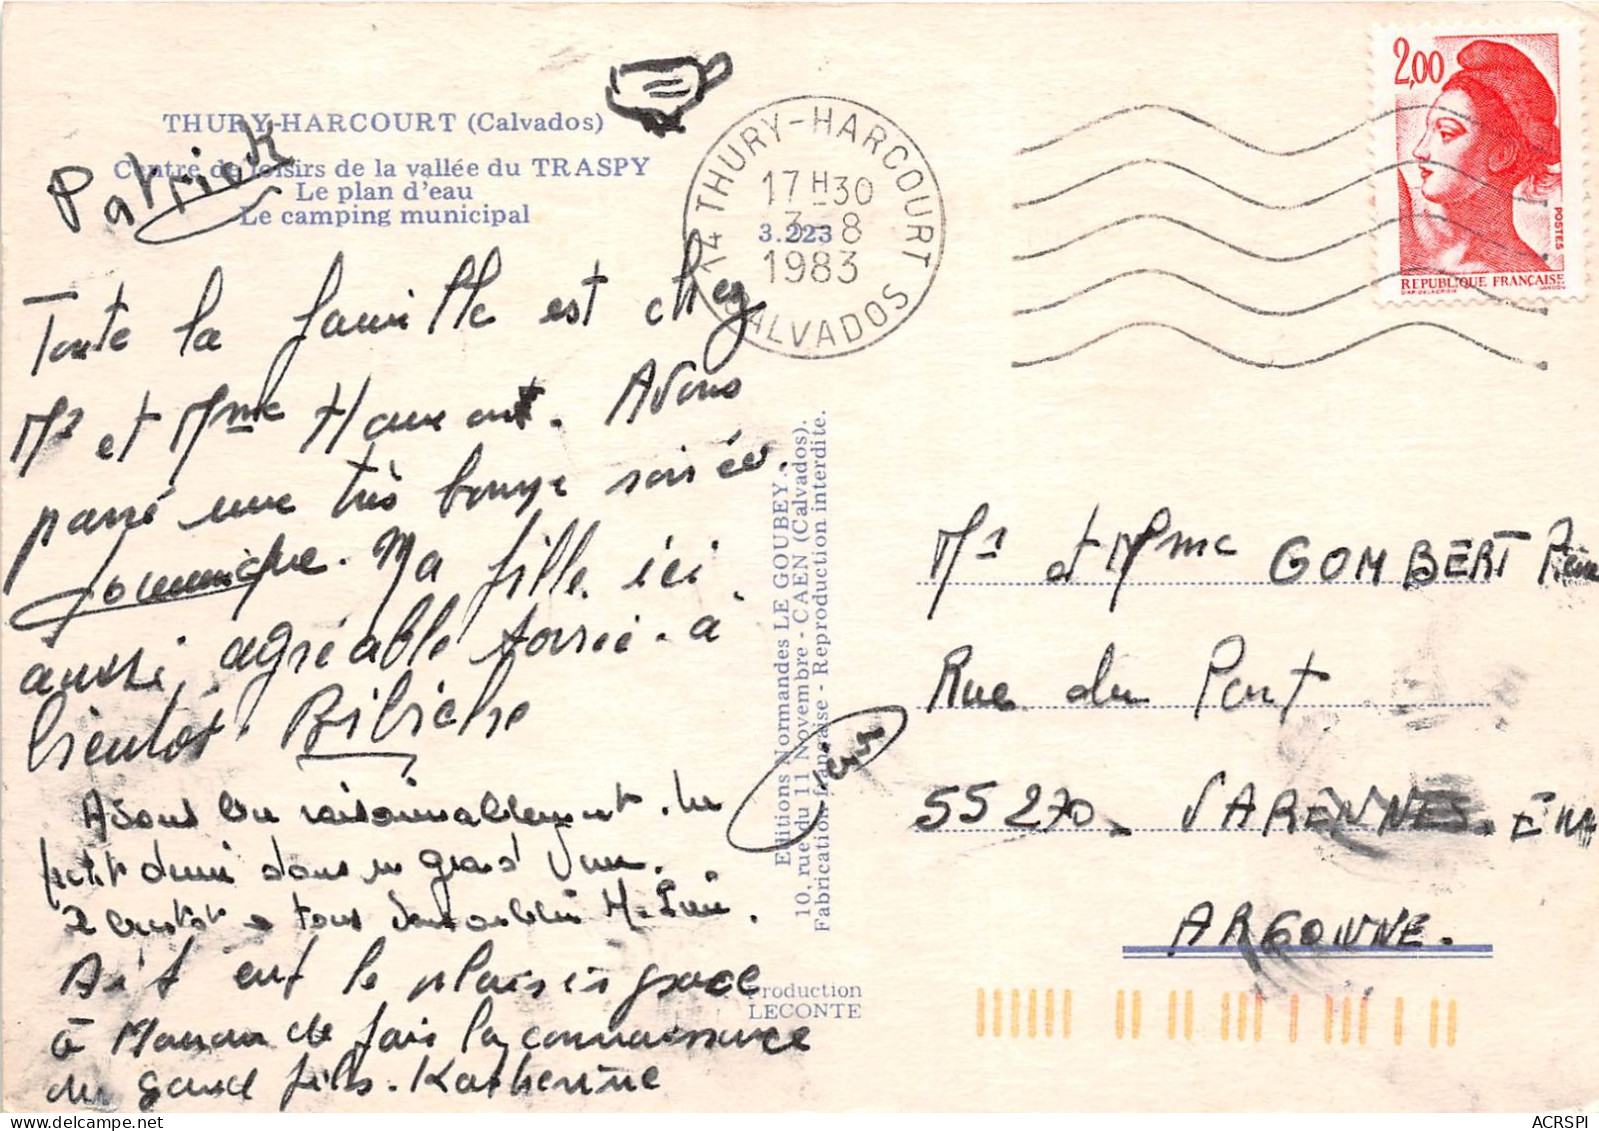 THURY-HARCOURT (Calvados)
Centre de loisirs de la vallée du TRASPY
Le plan d'eau
Le camping municipal
Patrick
Toute la famille est chez
Mr et Mme Haumont. Avons
passé une très bonne soirée.
Ma fille ici
aussi, agréable soirée. à
bientôt Bibiche
Avons bu raisonnablement. Un
petit demi dans un grand
à tous
Ai eut le plaisir grace
à Manou de fair la connaissance
du grand fils. Katherine
14 THURY-HARCOURT
17 H 30
3-8
1983
CALVADOS
3.223
2,00
POSTES
REPUBLIQUE FRANÇAISE
Editions Normandes LE GOUBEY.
10, rue du 11 Novembre - CAEN (Calvados).
Fabrication française - Reproduction interdite.
Production
LECONTE
Mr et Mme GOMBERT
Rue du Pont
55270. VARENNES. EN
ARGONNE.
ACRSPI